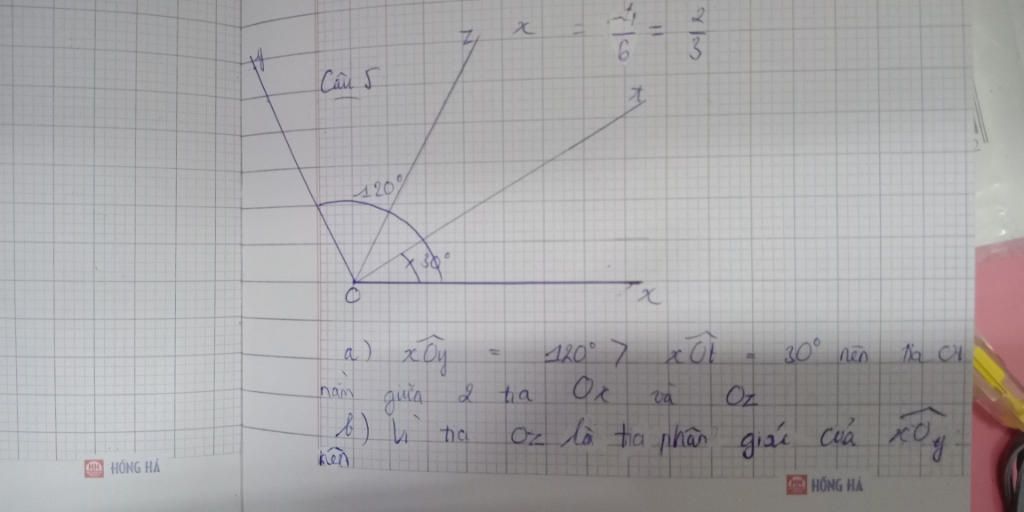 x = -4/6 = 2/3
y
z
Câu 5
t
120°
30°
O
x
a) xOy = 120° > xOt = 30° nên tia Ot
nằm giữa 2 tia Ox và Oz
b) Vì tia Oz là tia phân giác của xOy
nên
HH HỒNG HÀ
HH HỒNG HÀ